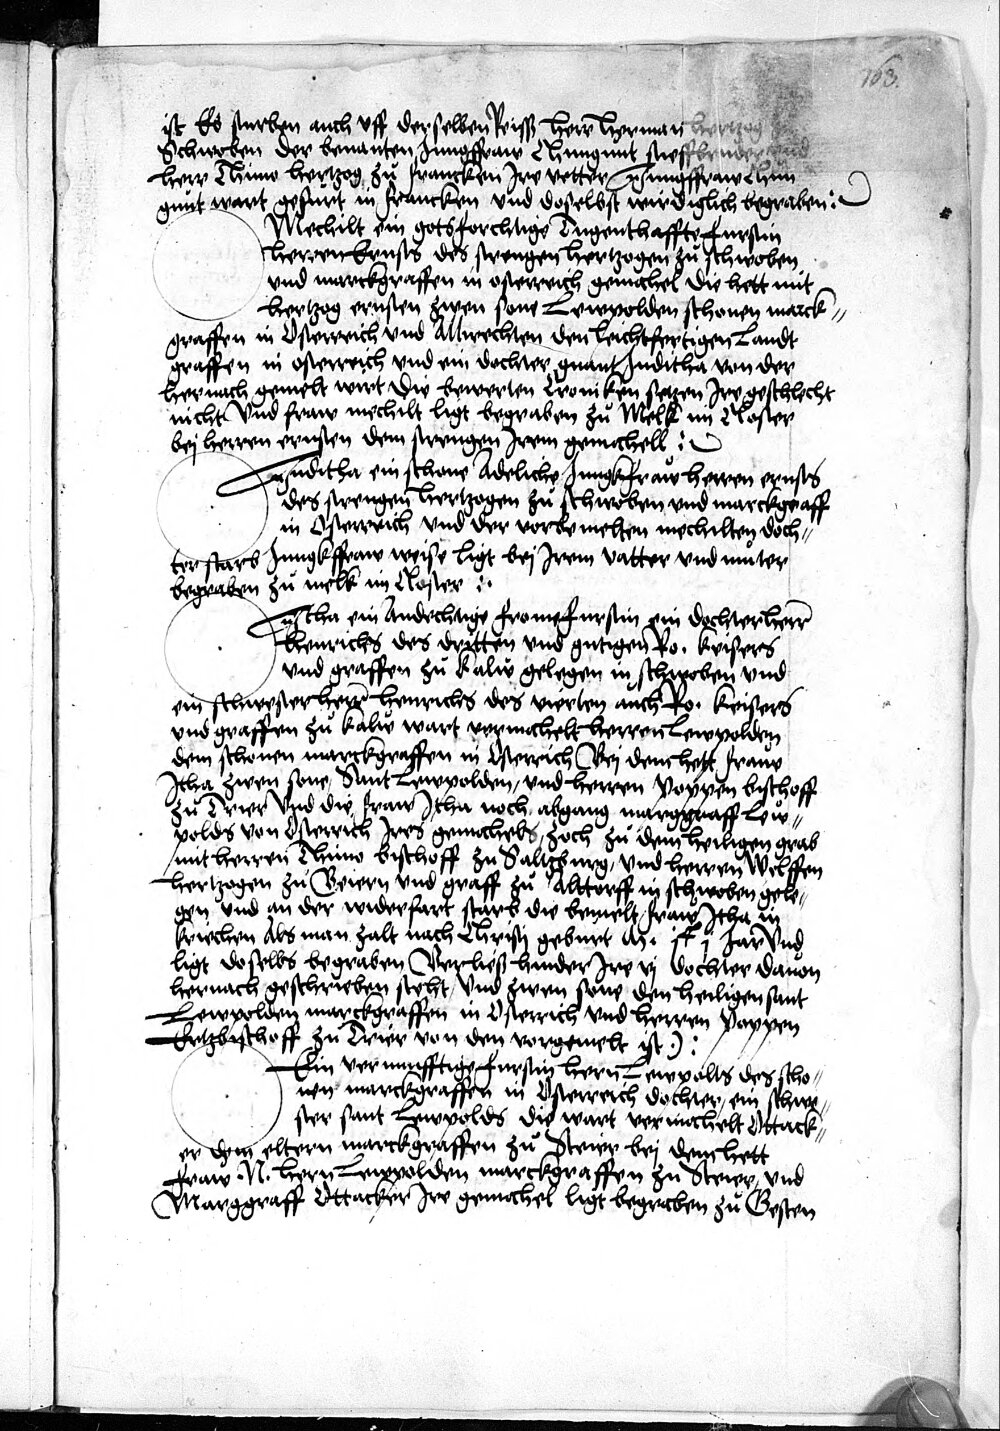 163.
ist Es sturben auch vff derselben Reiß herr herman hertzog zu
Schwoben der benanten Jungffraw Chungunt steffbruder vnd
herr Thimo hertzog zu francken Ire vetter Jungffraw Chun
gunt wart gefurt in francken vnd doselbst wirdiglich begraben :
Mechilt ein gotsforchtige Tugenthaffte furstin
herren Ernsts des strengen hertzogen zu schwoben
vnd marckgraffen in osterreich gemahel die hett mit
hertzog ernsten zwen sone Lewpolden schonen marck//
graffen in Osterreich vnd Albrechten den leichtfertigen Landt
graffen in osterreich vnd ein dochter gnant Juditha von der
hernach gemelt wirt Die bewerten Croniken setzen Ire geschlecht
nicht Vnd fraw mechilt ligt begraben zu Melk im Closter
bej herren ernsten dem strengen Irem gemachell :
Juditha ein schone Adeliche Jungkfraw herren ernsts
des strengen hertzogen zu schwoben vnd marckgraff
in Osterreich vnd der vorbemelten mechilten doch//
ter starb Jungkffraw weise ligt bei Irem vatter vnd muter
begraben zu melk im Closter :
Itha ein Andechtige frome furstin ein dochter herr
henrichs des dritten vnd gutigen Ro. keisers
vnd graffen zu kalw gelegen in schwoben vnd
ein schwester herr henrichs des vierten auch Ro. keisers
vnd graffen zu kalw wart vermahelt herren Lewpolden
dem schonen marckgraffen in Osterrich Bej dem hett fraw
Itha zwen sone Sant Lewpolden, vnd herren Poppen bischoff
zu Trier Vnd die fraw Itha noch abgang marggraff Lew//
polds von Osterrich Ires gemahels, zoch zu dem heiligen grab
mit herren Thimo bischoff zu Saltzburg, vnd herren Welffen
hertzogen zu Beiern vnd graff zu Alttorff in schwoben gele//
gen vnd an der widerfart starb die bemelt fraw Itha in
kriechen Als man zalt nach Christj geburt Jar Vnd
ligt doselbs begraben Verließ hinder Ire vj dochter dauon
hernach geschrieben steht Vnd zwen sone den heiligen sant
Lewpolden marckgraffen in Osterrich vnd herren Poppen
Ertzbischoff zu Trier von den vorgemelt ist :
Ein vernunfftige furstin hern Lewpolts des scho//
nen marckgraffen in Osterreich dochter, ein schwe//
ster sant Lewpolds die wart vermahelt Ottack//
er dem eltern marckgraffen zu Steier bei dem hett
fraw .N. hern Lewpolden marckgraffen zu Steier, vnd
Marggraff Ottacker Ire gemahel ligt begraben zu Gesten